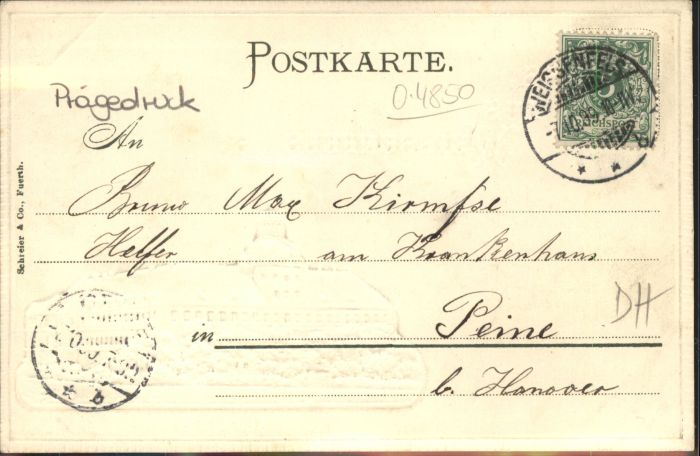 POSTKARTE.
WEISSENFELS
Prägedruck
0.4850
An
Bruno Max Kirmfse
Helfer am Krankenhaus
in Peine
b. Hanover
DH
Schreier & Co., Fuerth.
* b